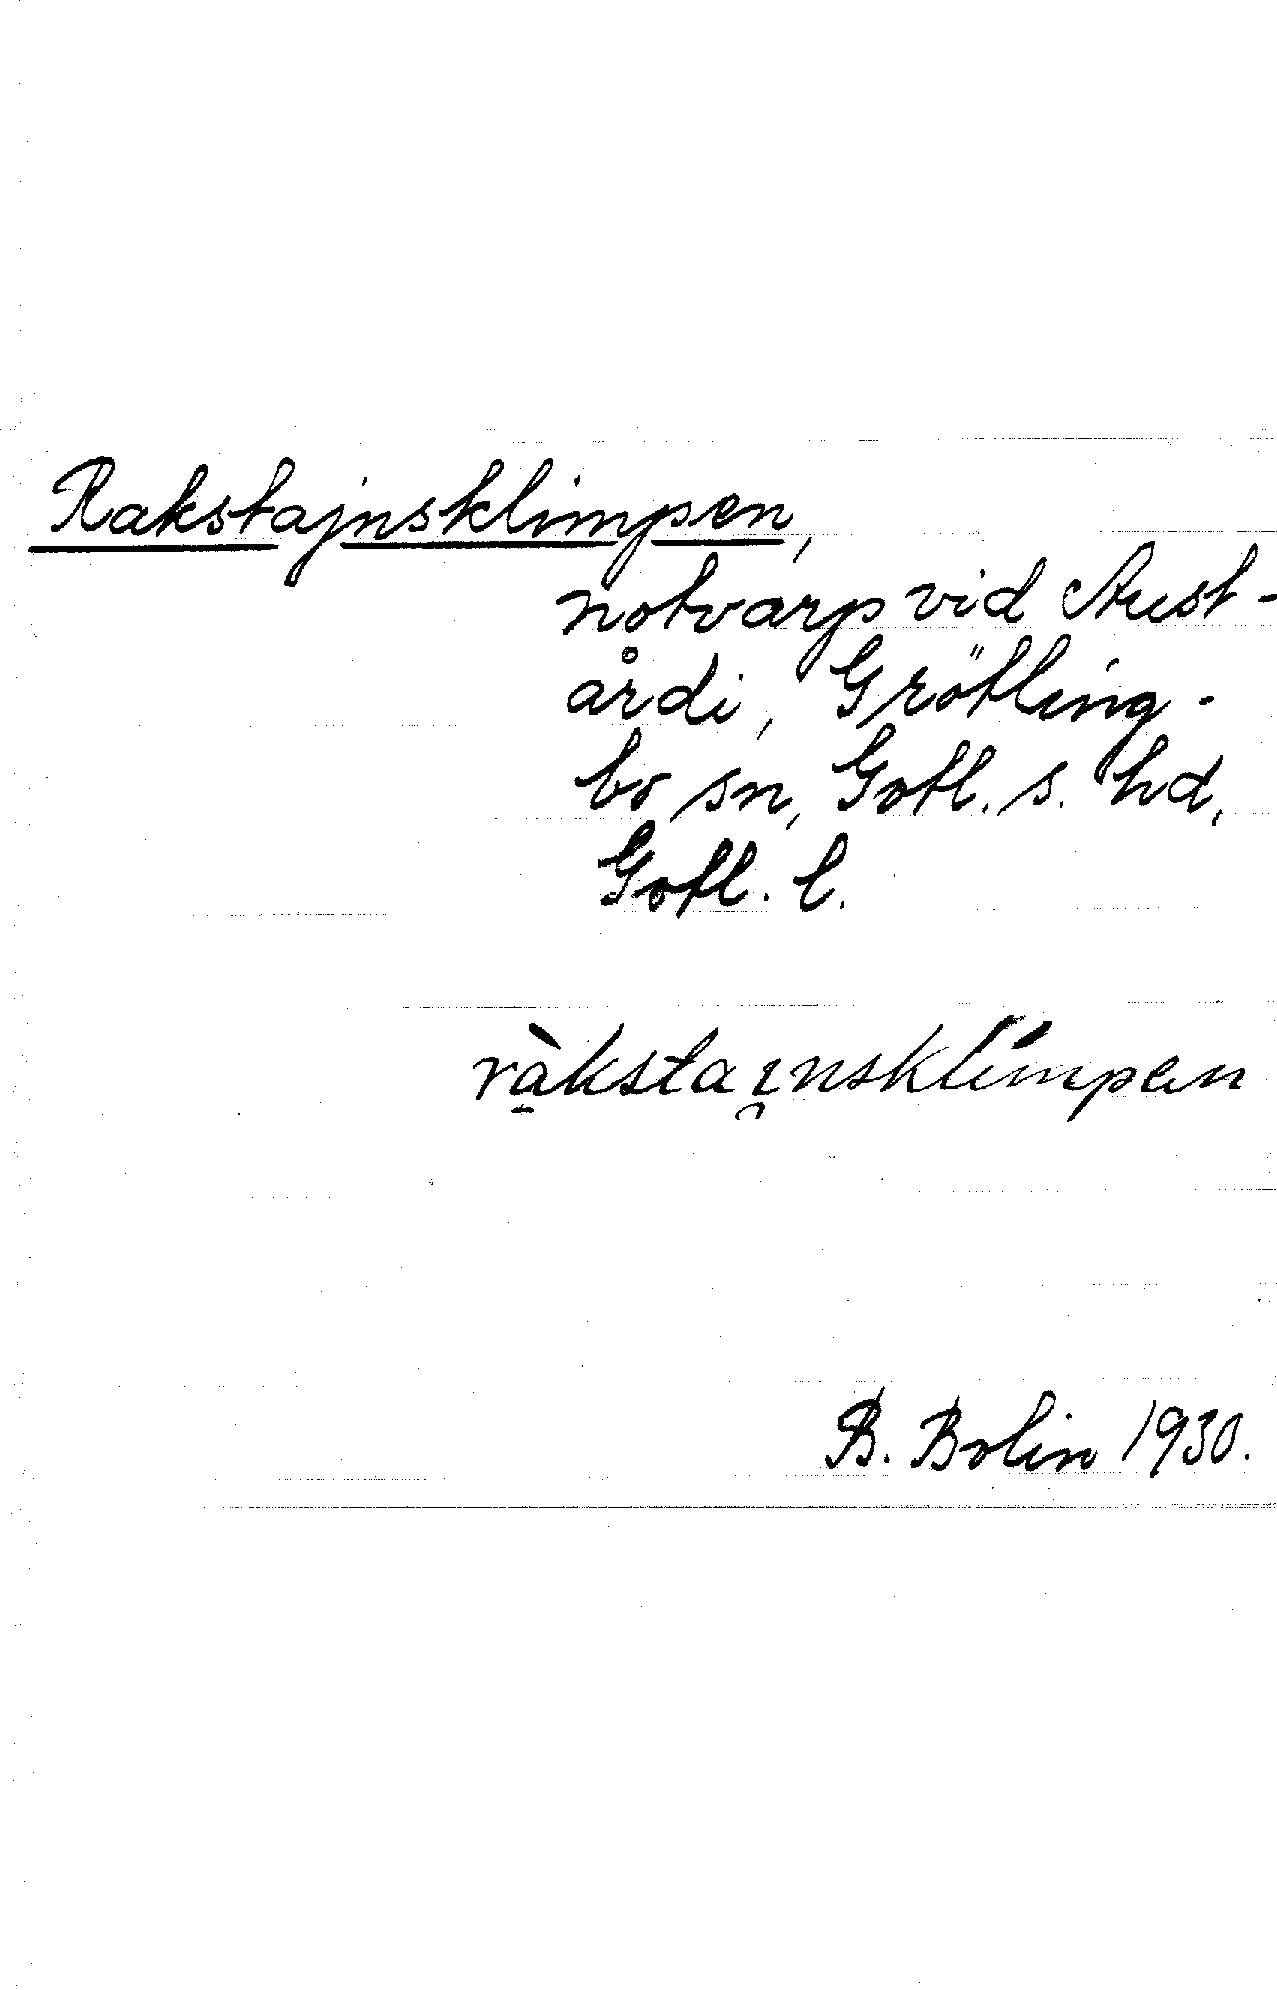 Rakstajnsklimpen,
notvarp vid Aust-
årdi, Grötling-
bo sn, Gotl. s. hd,
Gotl. l.
ràkstaı̯nsklímpen
B. Bolin 1930.